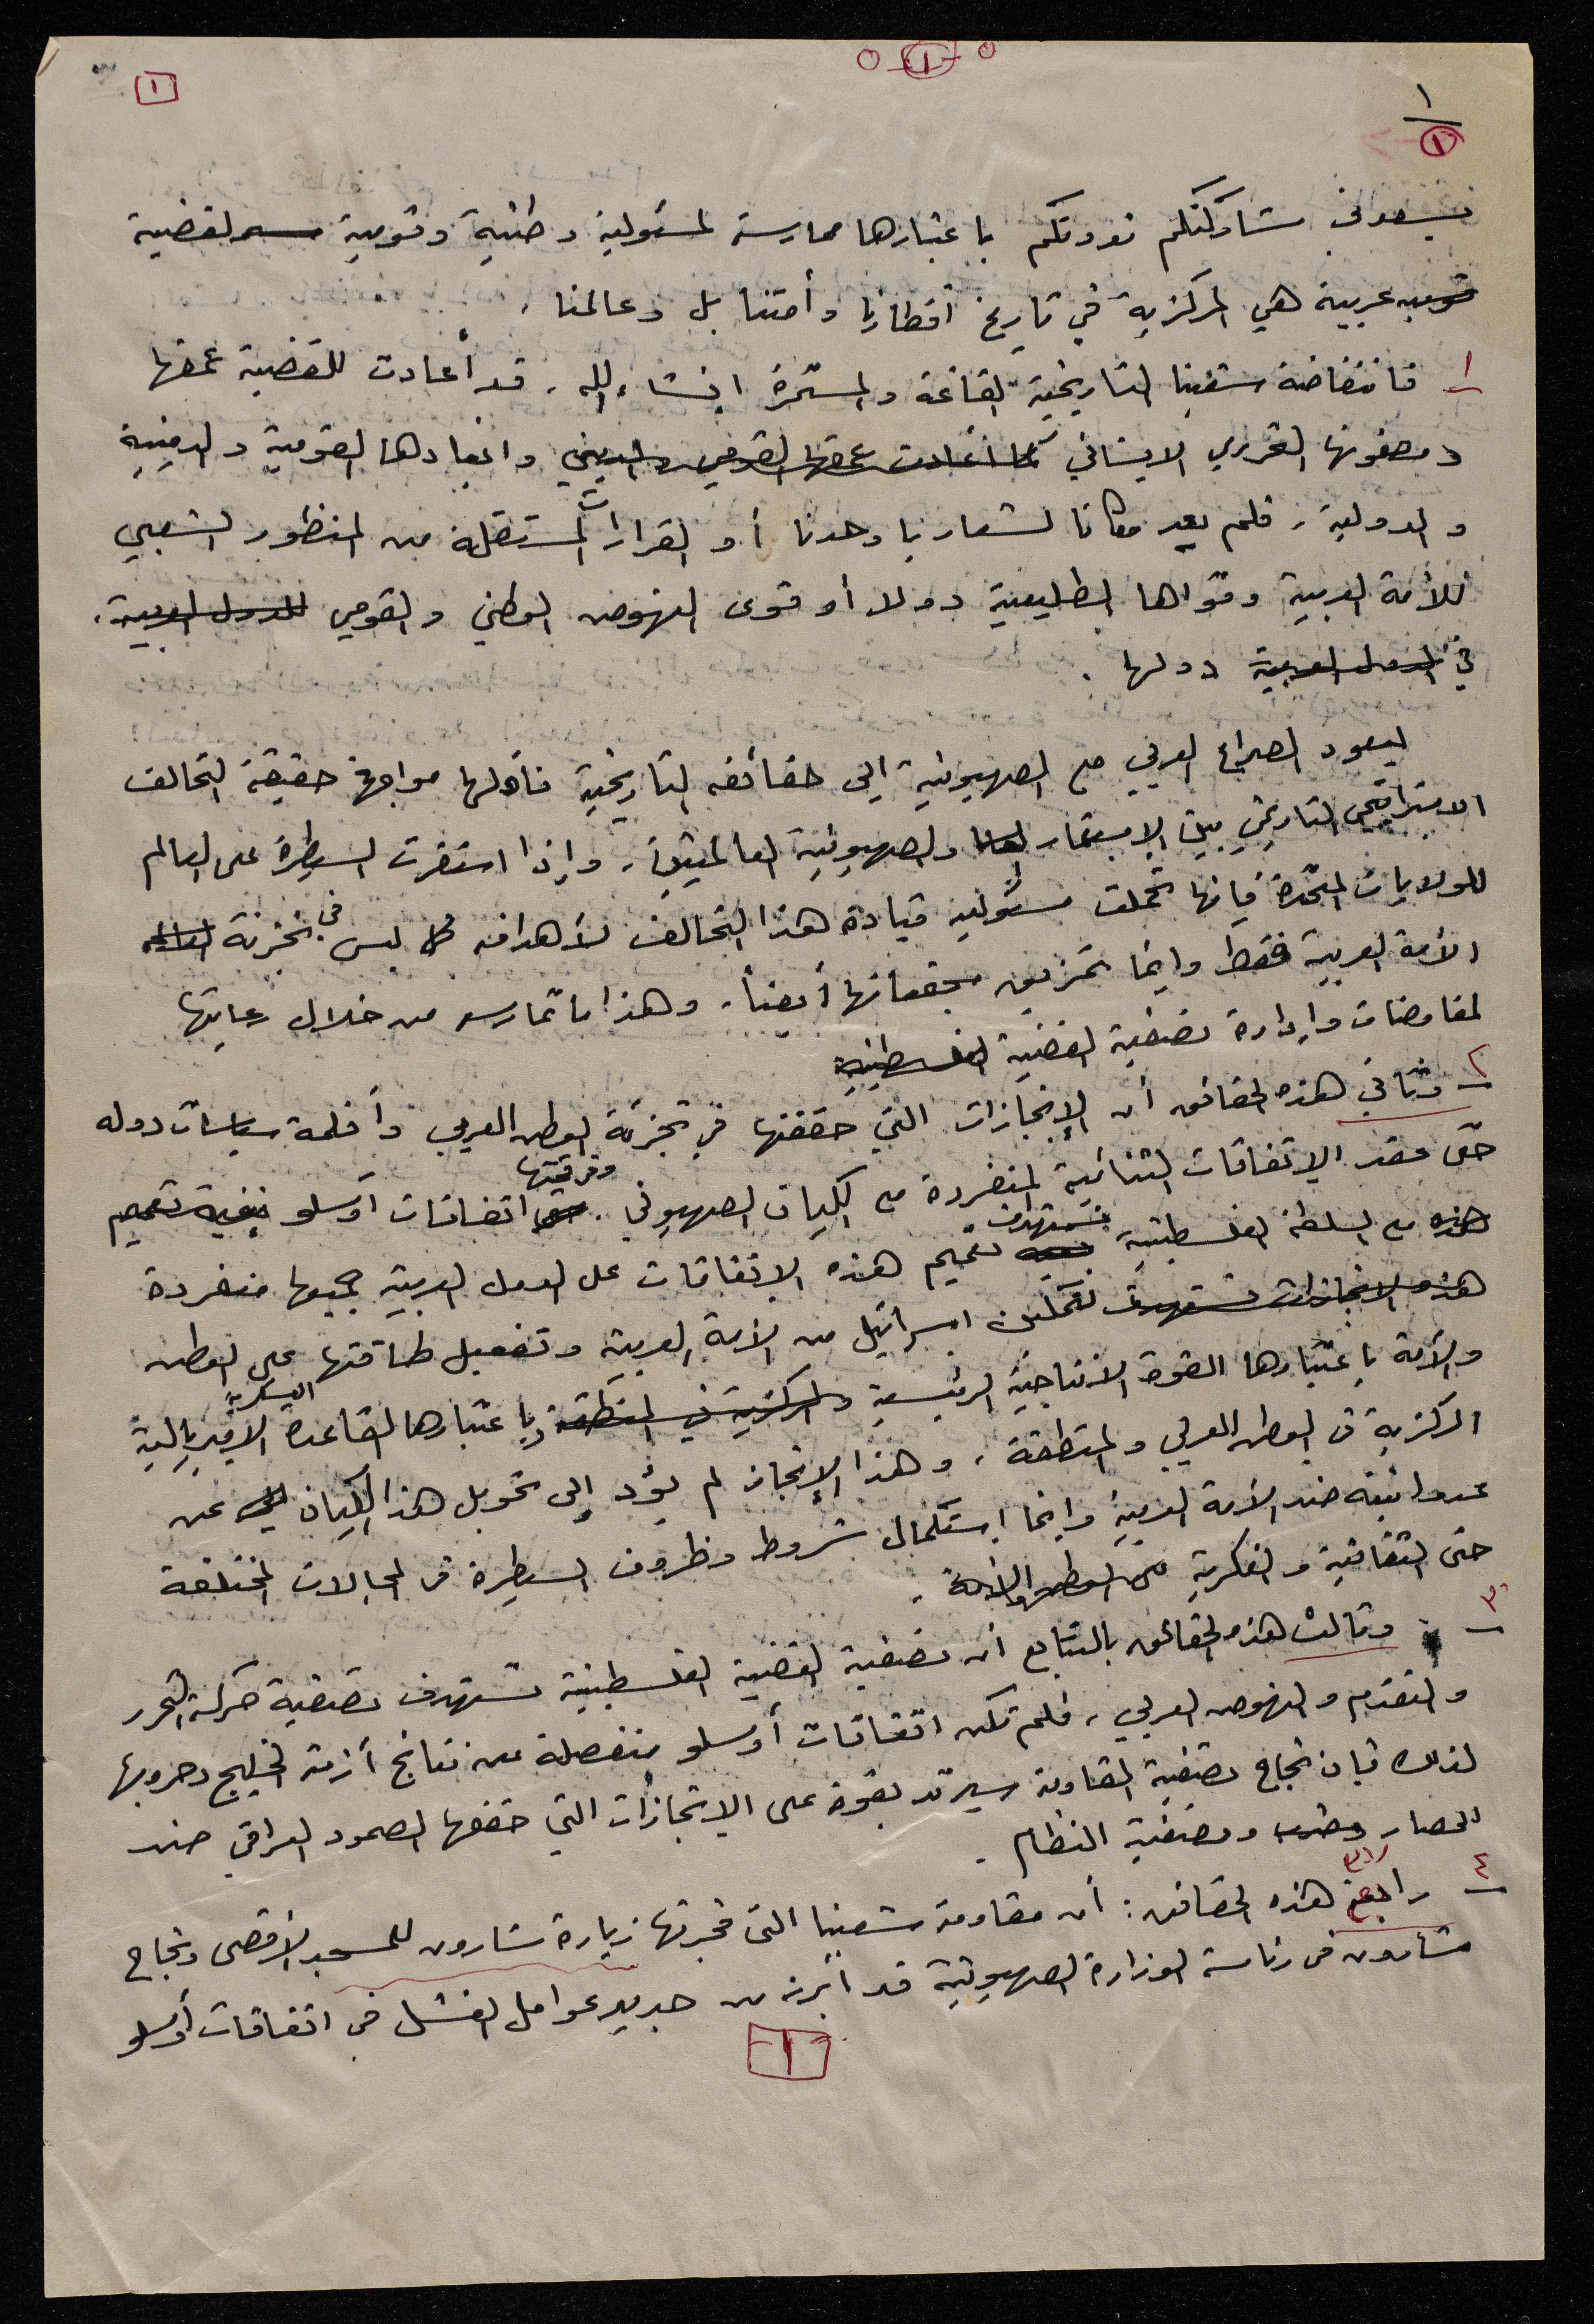 ١
١
١
١
يسعدني مشاركتكم ندوتكم باعتبارها ممارسة لمسئولية وطنية وقومية لقضية
عربية هي المركزية في تاريخ أقطارنا وأمتنا بل وعالمنا .
١ـ فانتفاضة شعبنا التاريخية القائمة والمستمرة انشاء الله ، قد أعادت للقضية عمقها
ومضمونها التحرري الانساني كما أعادت عمقها القومي والديني وابعادها القومية والدينية
والدولية ، فلم يعد مكانا لشعار يا وحدنا أو القرارات المستقلة من المنظور الشعبي
للأمة العربية وقواها الطليعية دولا أو قوى النهوض الوطني والقومي للدول العربية .
في الدول العربية دولها .
ليعود الصراع العربي مع الصهيونية إلى حقائقه التاريخية فأولها مواجهة حقيقة التحالف
الاستراتيجي التاريخي بين الاستعمار والصهيونية العالميتين ، وإذا استقرت السيطرة على العالم
للولايات المتحدة فإنها تحملت مسئولية قيادة هذا التحالف لأهدافه ليس في تجزئة
الأمة العربية فقط وانما تمزيق مجتمعاتها أيضاً ، وهذا ما تمارسه من خلال رعايتها
لمفاوضات وإدارة تصفية القضية الفلسطينية
٢ـ وثاني هذه الحقائق أن الإنجازات التي حققتها في تجزئة الوطن العربي وأقلمة سياسات دوله
حتى عقد الاتفاقات الثنائية المنفردة مع الكيان الصهيوني . وفرقتها اتفاقات أوسلو بغية تعميم
هذه مع السلطة الفلسطينية تستهدف تعميم هذه الاتفاقات على الدول العربية جميعها منفردة
هذه الانجازات تستهدف تمكين اسرائيل من الأمة العربية وتفعيل طاقتها على الوطن
والأمة باعتبارها القوة الانتاجية الرئيسية والمركزية في المنطقة وباعتبارها القاعدة العسكرية الامبريالية
المركزية في الوطن العربي والمنطقة ، وهذا الإنجاز لم يؤد إلى تحويل هذا الكيان عن
عدوانيته ضد الأمة العربية وانما استكمال شروط وظروف السيطرة في المجالات المختلفة
حتى الثقافية والفكرية على الوطن والأمة .
٣ـ وثالث هذه الحقائق بالتتابع أن تصفية القضية الفلسطينية تستهدف تصفية حركة التحرر
والتقدم والنهوض العربي ، فلم تكن اتفاقات أوسلو منفصلة عن نتائج أزمة الخليج وحروبها
لذلك فإن نجاح تصفية المقاومة سيرتد بقوة على الانجازات التي حققها الصمود العراقي ضد
الحصار وضرب وتصفية النظام .
٤ـ رابع هذه الحقائق : أن مقاومة شعبنا التي فجرتها زيارة شارون للمسجد الأقصى ونجاح
شارون في رئاسة الوزارة الصهيونية قد أبرزت من جديد عوامل الفشل في اتفاقات أوسلو
١